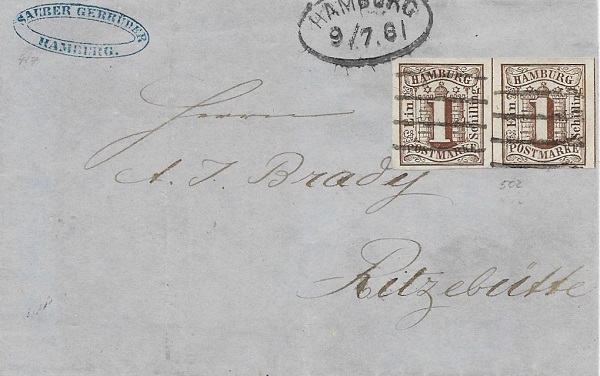 SAUBER GEBRÜDER
HAMBURG.
HAMBURG
9/7.61
HAMBURG
Ein Schilling
1
POSTMARKE
HAMBURG
Ein Schilling
1
POSTMARKE
Herrn
A. J. Brady
502
Ritzebütte